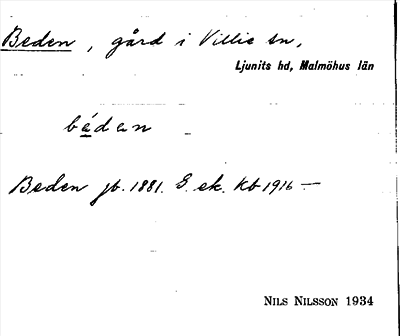 Beden, gård i Villie sn,
Ljunits hd, Malmöhus län
béden
Beden jb. 1881. G. ek. Kb 1916 —
NILS NILSSON 1934